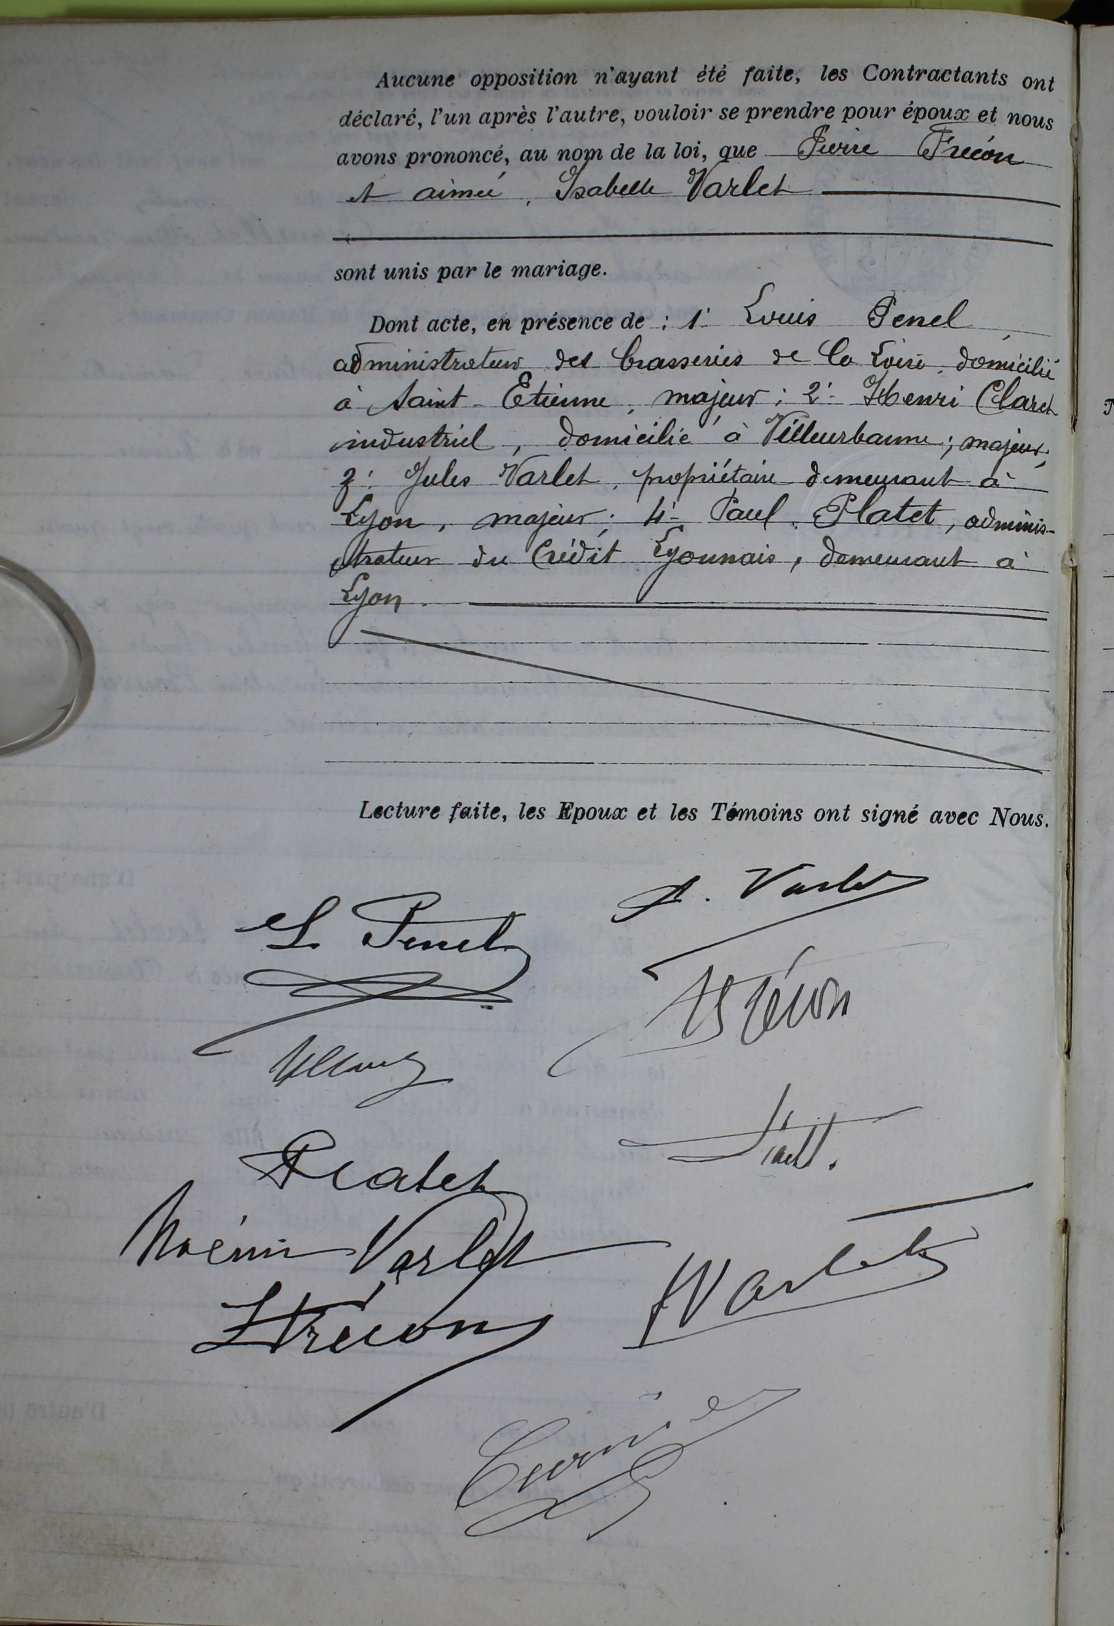 Aucune opposition n'ayant été faite, les Contractants ont
déclaré, l'un après l'autre, vouloir se prendre pour époux et nous
avons prononcé, au nom de la loi, que Pierre Frécon
et aimée, Isabelle Varlet
sont unis par le mariage.
Dont acte, en présence de : 1° Louis Penel
administrateur des brasseries de la Loire, domicilié
à Saint-Etienne, majeur ; 2° Henri Claret
industriel, domicilié à Villeurbanne ; majeur ;
3° Jules Varlet, propriétaire demeurant à
Lyon, majeur ; 4° Paul Platet, adminis-
trateur du Crédit Lyonnais, demeurant à
Lyon.
Lecture faite, les Epoux et les Témoins ont signé avec Nous.
A. Varlet
L. Penel
Frécon
Platet
Noémi Varlet
Varlet
Frécon